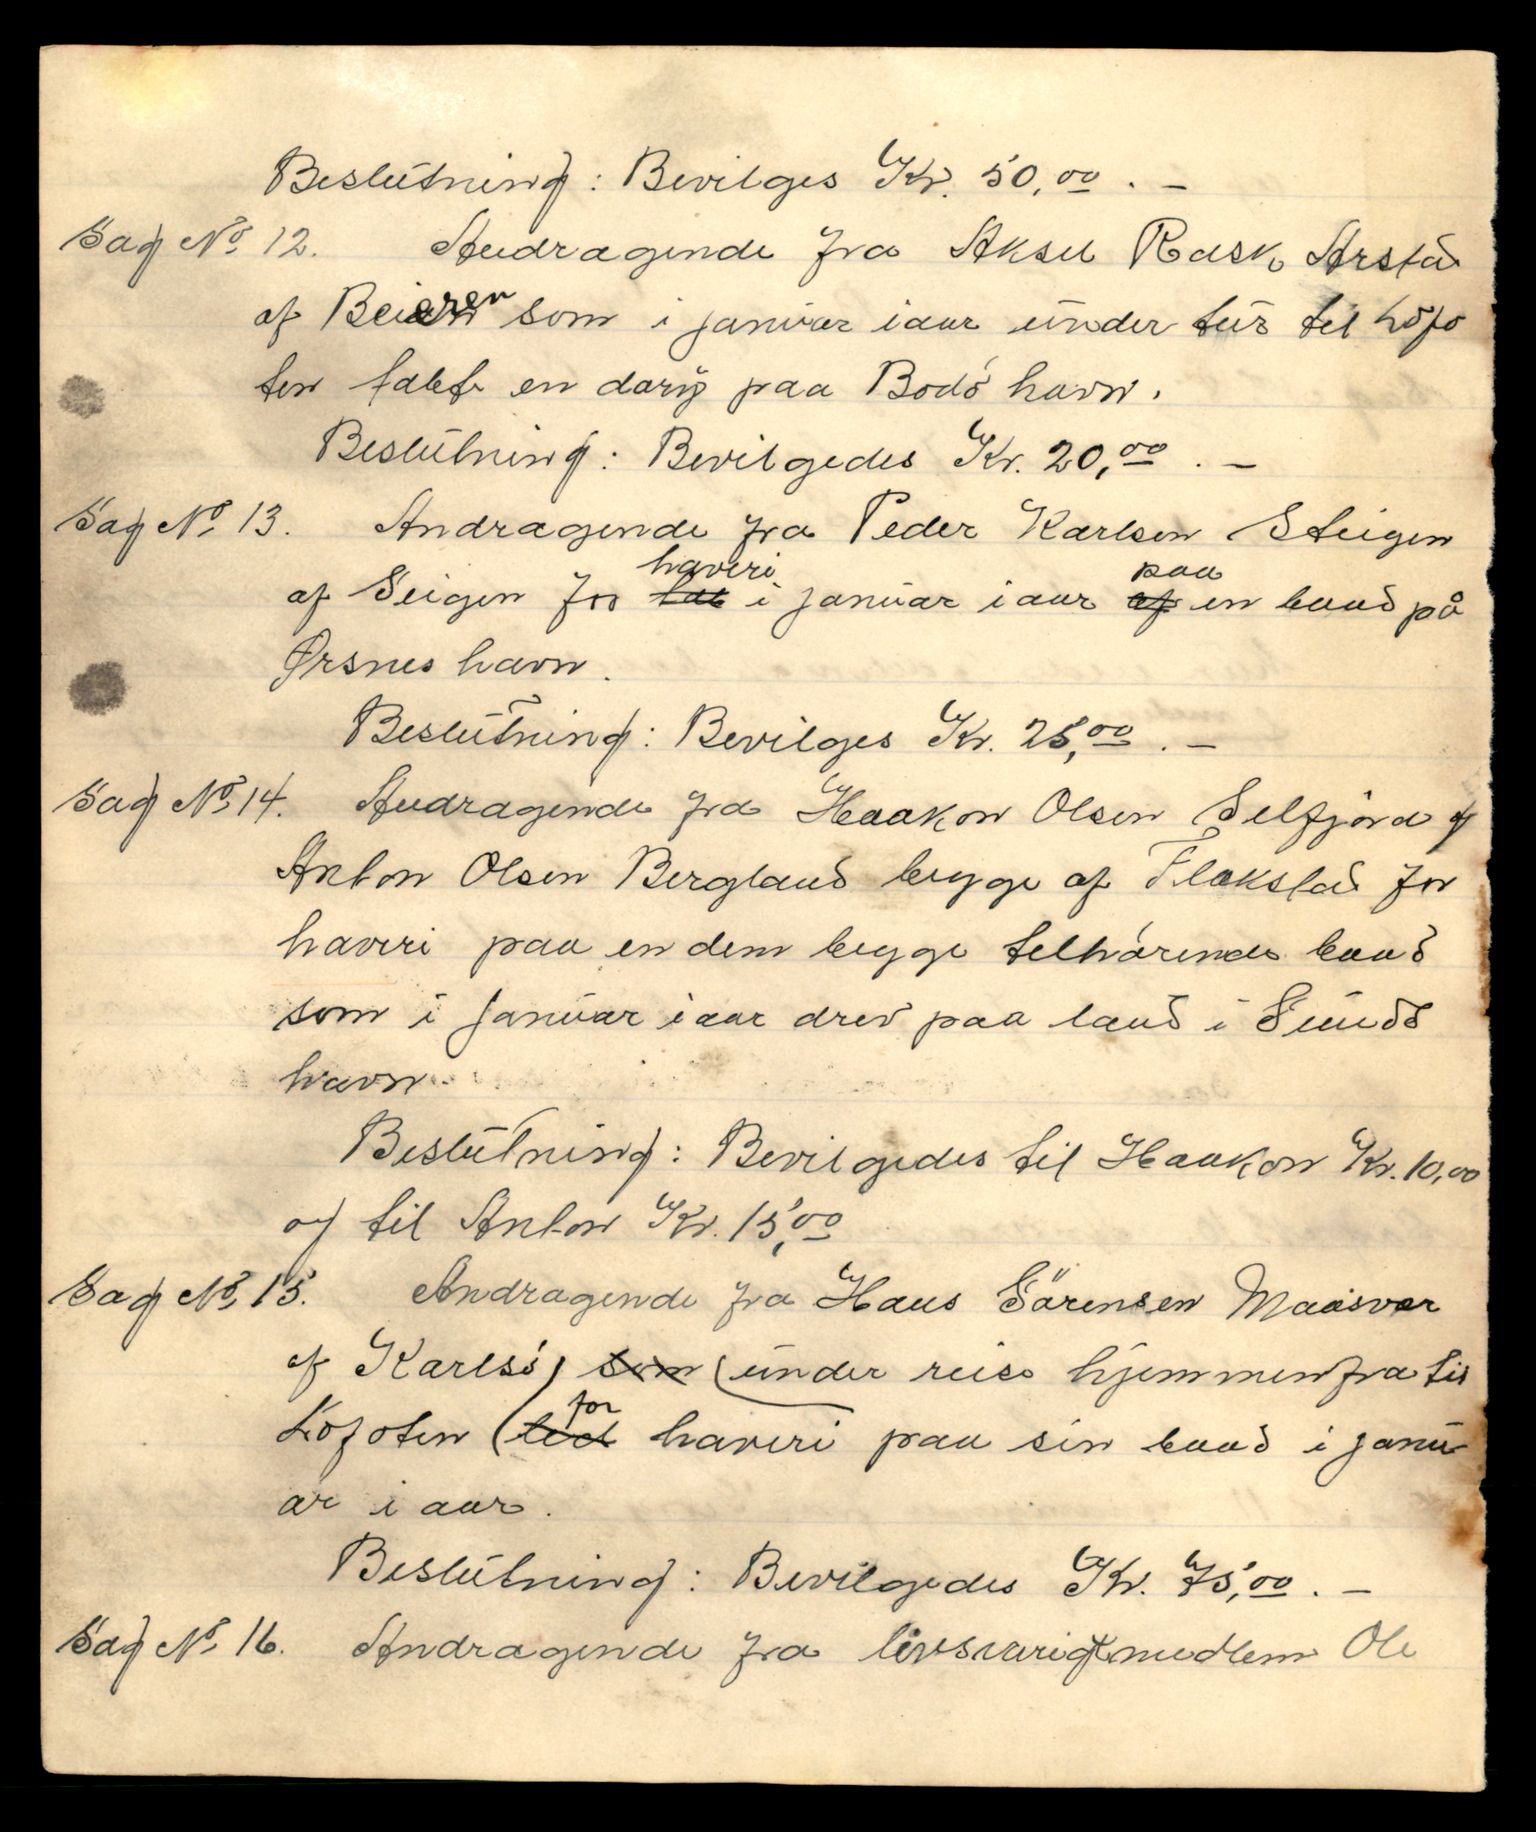 Beslutning: Bevilges Kr. 50,00. –
Sag No 12. Andragende fra Aksel Rask, Arstad
af Beiaren som i januar iaar under tur til Lofo
ten tabt en dory paa Bodö havn.
Beslutning: Bevilgedes Kr. 20,00. –
Sag No 13. Andragende fra Peder Karlsen Steigen
af Seigen for tab haveri i januar iaar af paa en baad på
Ørsnes havn.
Beslutning: Bevilges Kr. 25,00. –
Sag No 14. Andragende fra Haakon Olsen Selfjord og
Anton Olsen Bergland begge af Flakstad for
haveri paa en dem begge telhörende baad
som i januar iaar drev paa land i Sunds
havn.
Beslutning: Bevilgedes til Haakon Kr. 10,00
og til Anton Kr. 15,00
Sag No 15. Andragende fra Hans Sörensen Maasvær
af Karlsö, som (under reise hjemmenfra til
Lofoten) led for haveri paa sin baad i janu
ar i aar.
Beslutning: Bevilgedes Kr. 75,00. –
Sag No 16. Andragende fra livsvarigtmedlem Ole